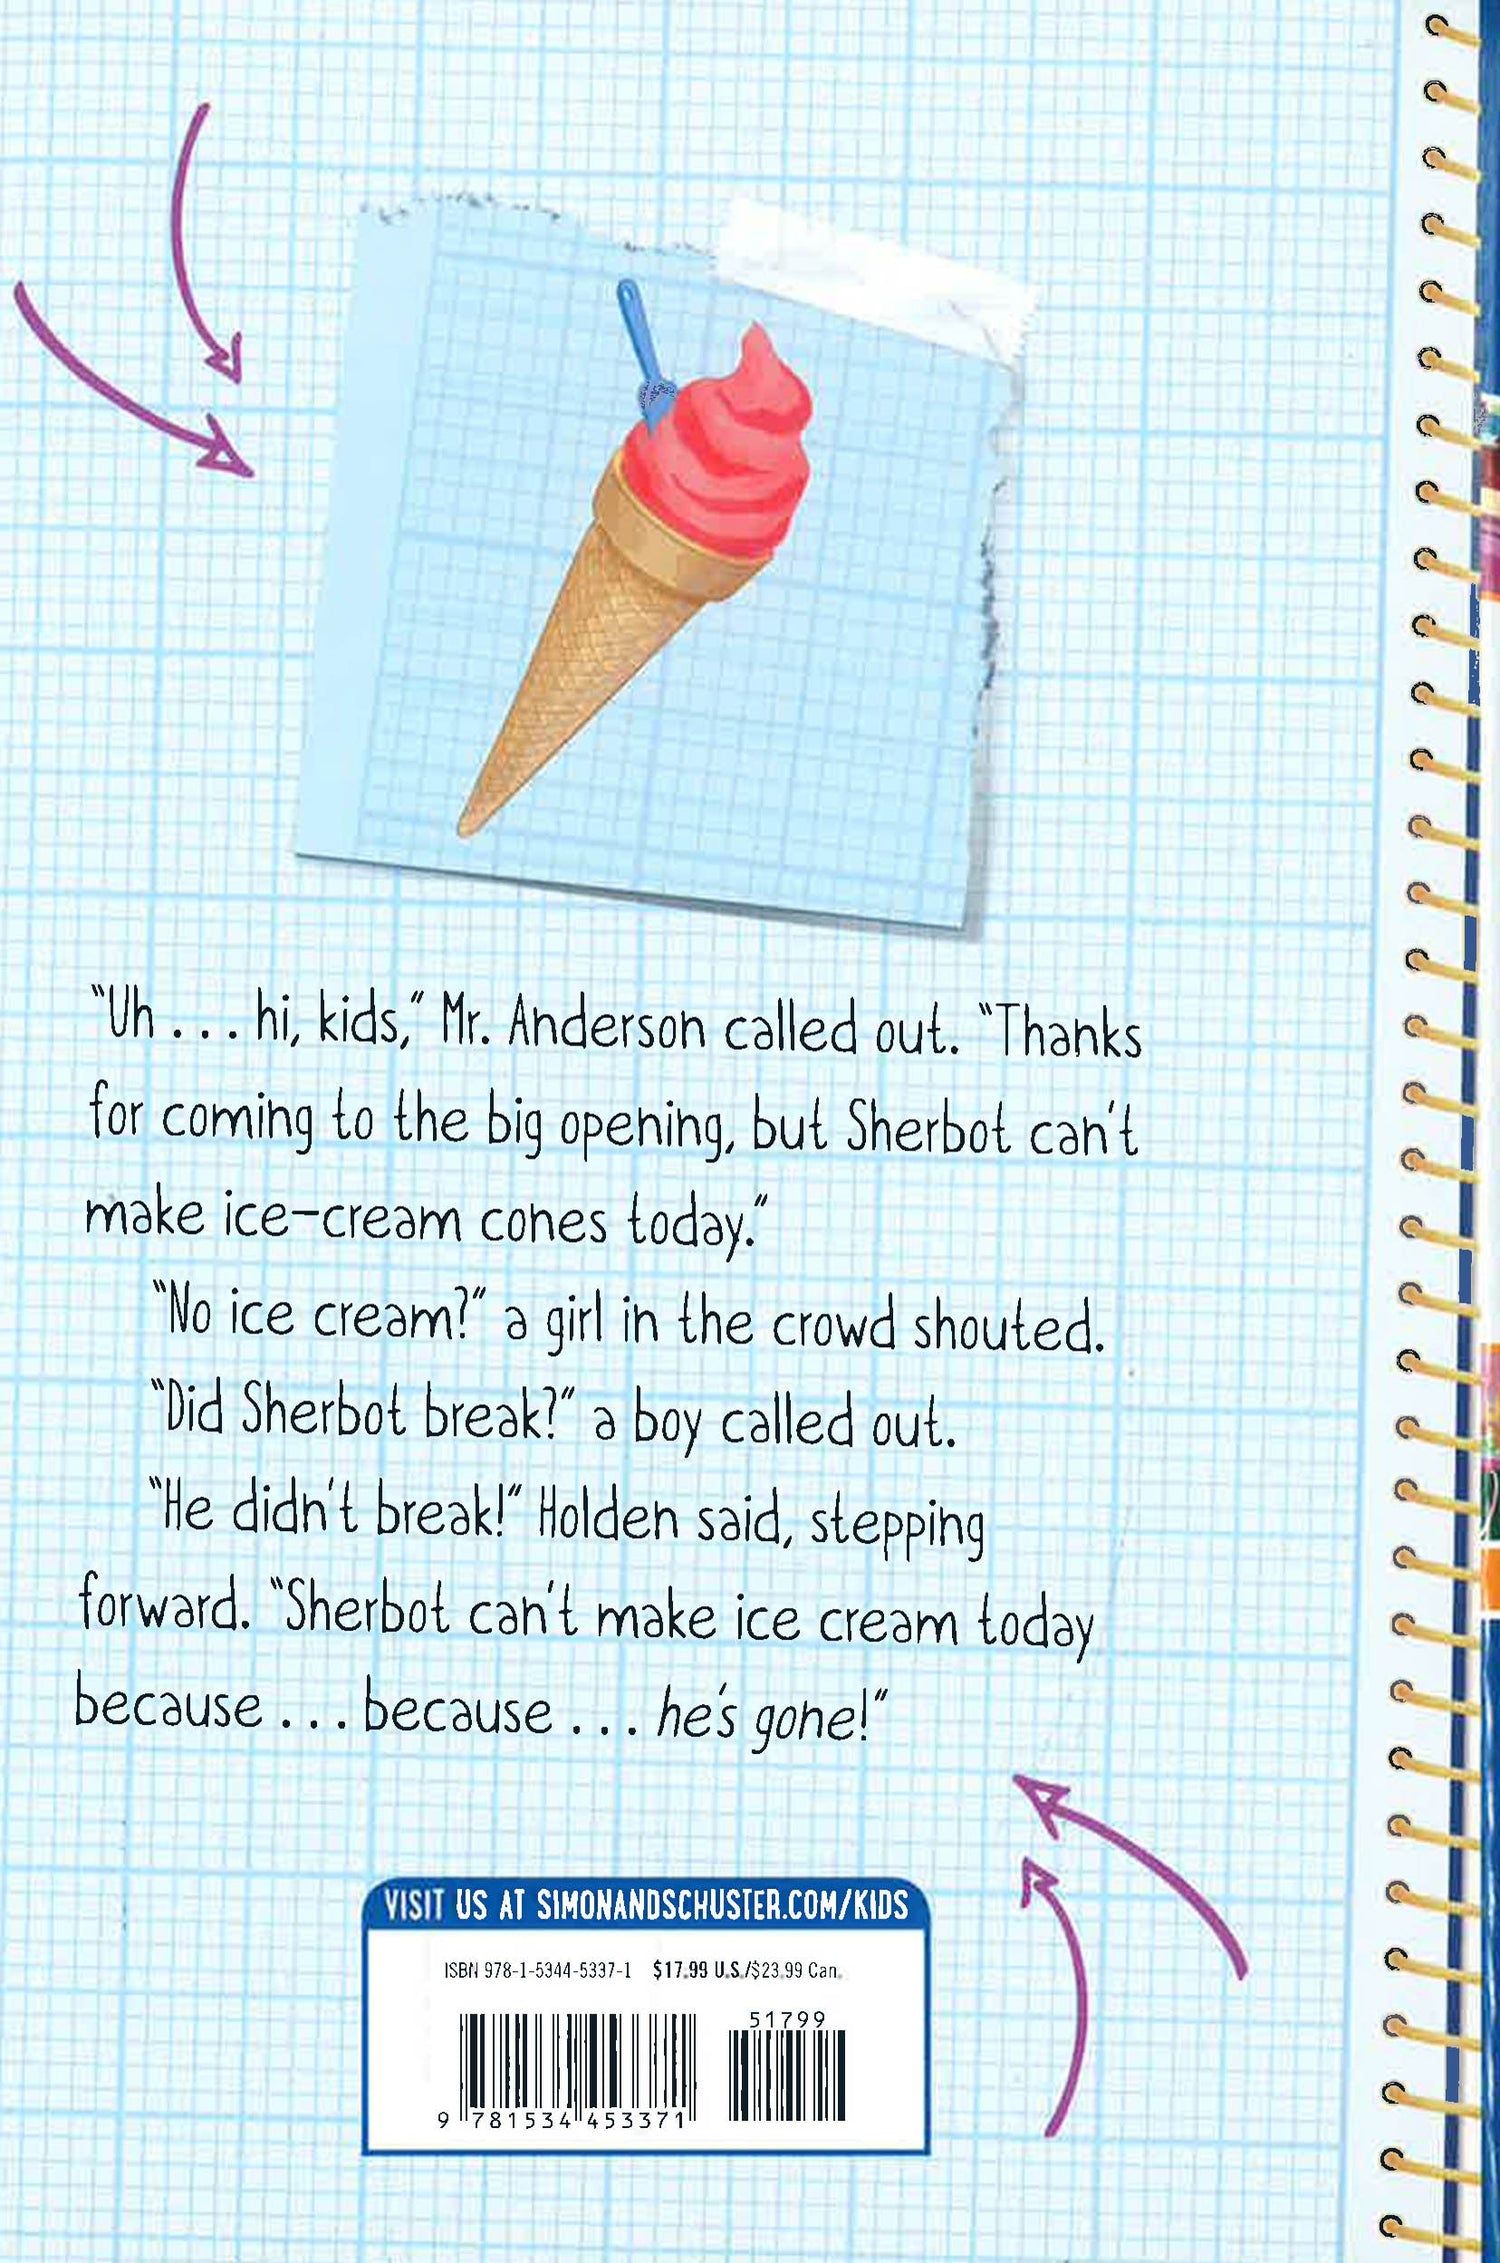 “Uh . . . hi, kids,” Mr. Anderson called out. “Thanks
for coming to the big opening, but Sherbot can’t
make ice-cream cones today.”
“No ice cream?” a girl in the crowd shouted.
“Did Sherbot break?” a boy called out.
“He didn’t break!” Holden said, stepping
forward. “Sherbot can’t make ice cream today
because . . . because . . . he’s gone!”
VISIT US AT SIMONANDSCHUSTER.COM/KIDS
ISBN 978-1-5344-5337-1 $17.99 U.S./$23.99 Can.
51799
9 781534 453371